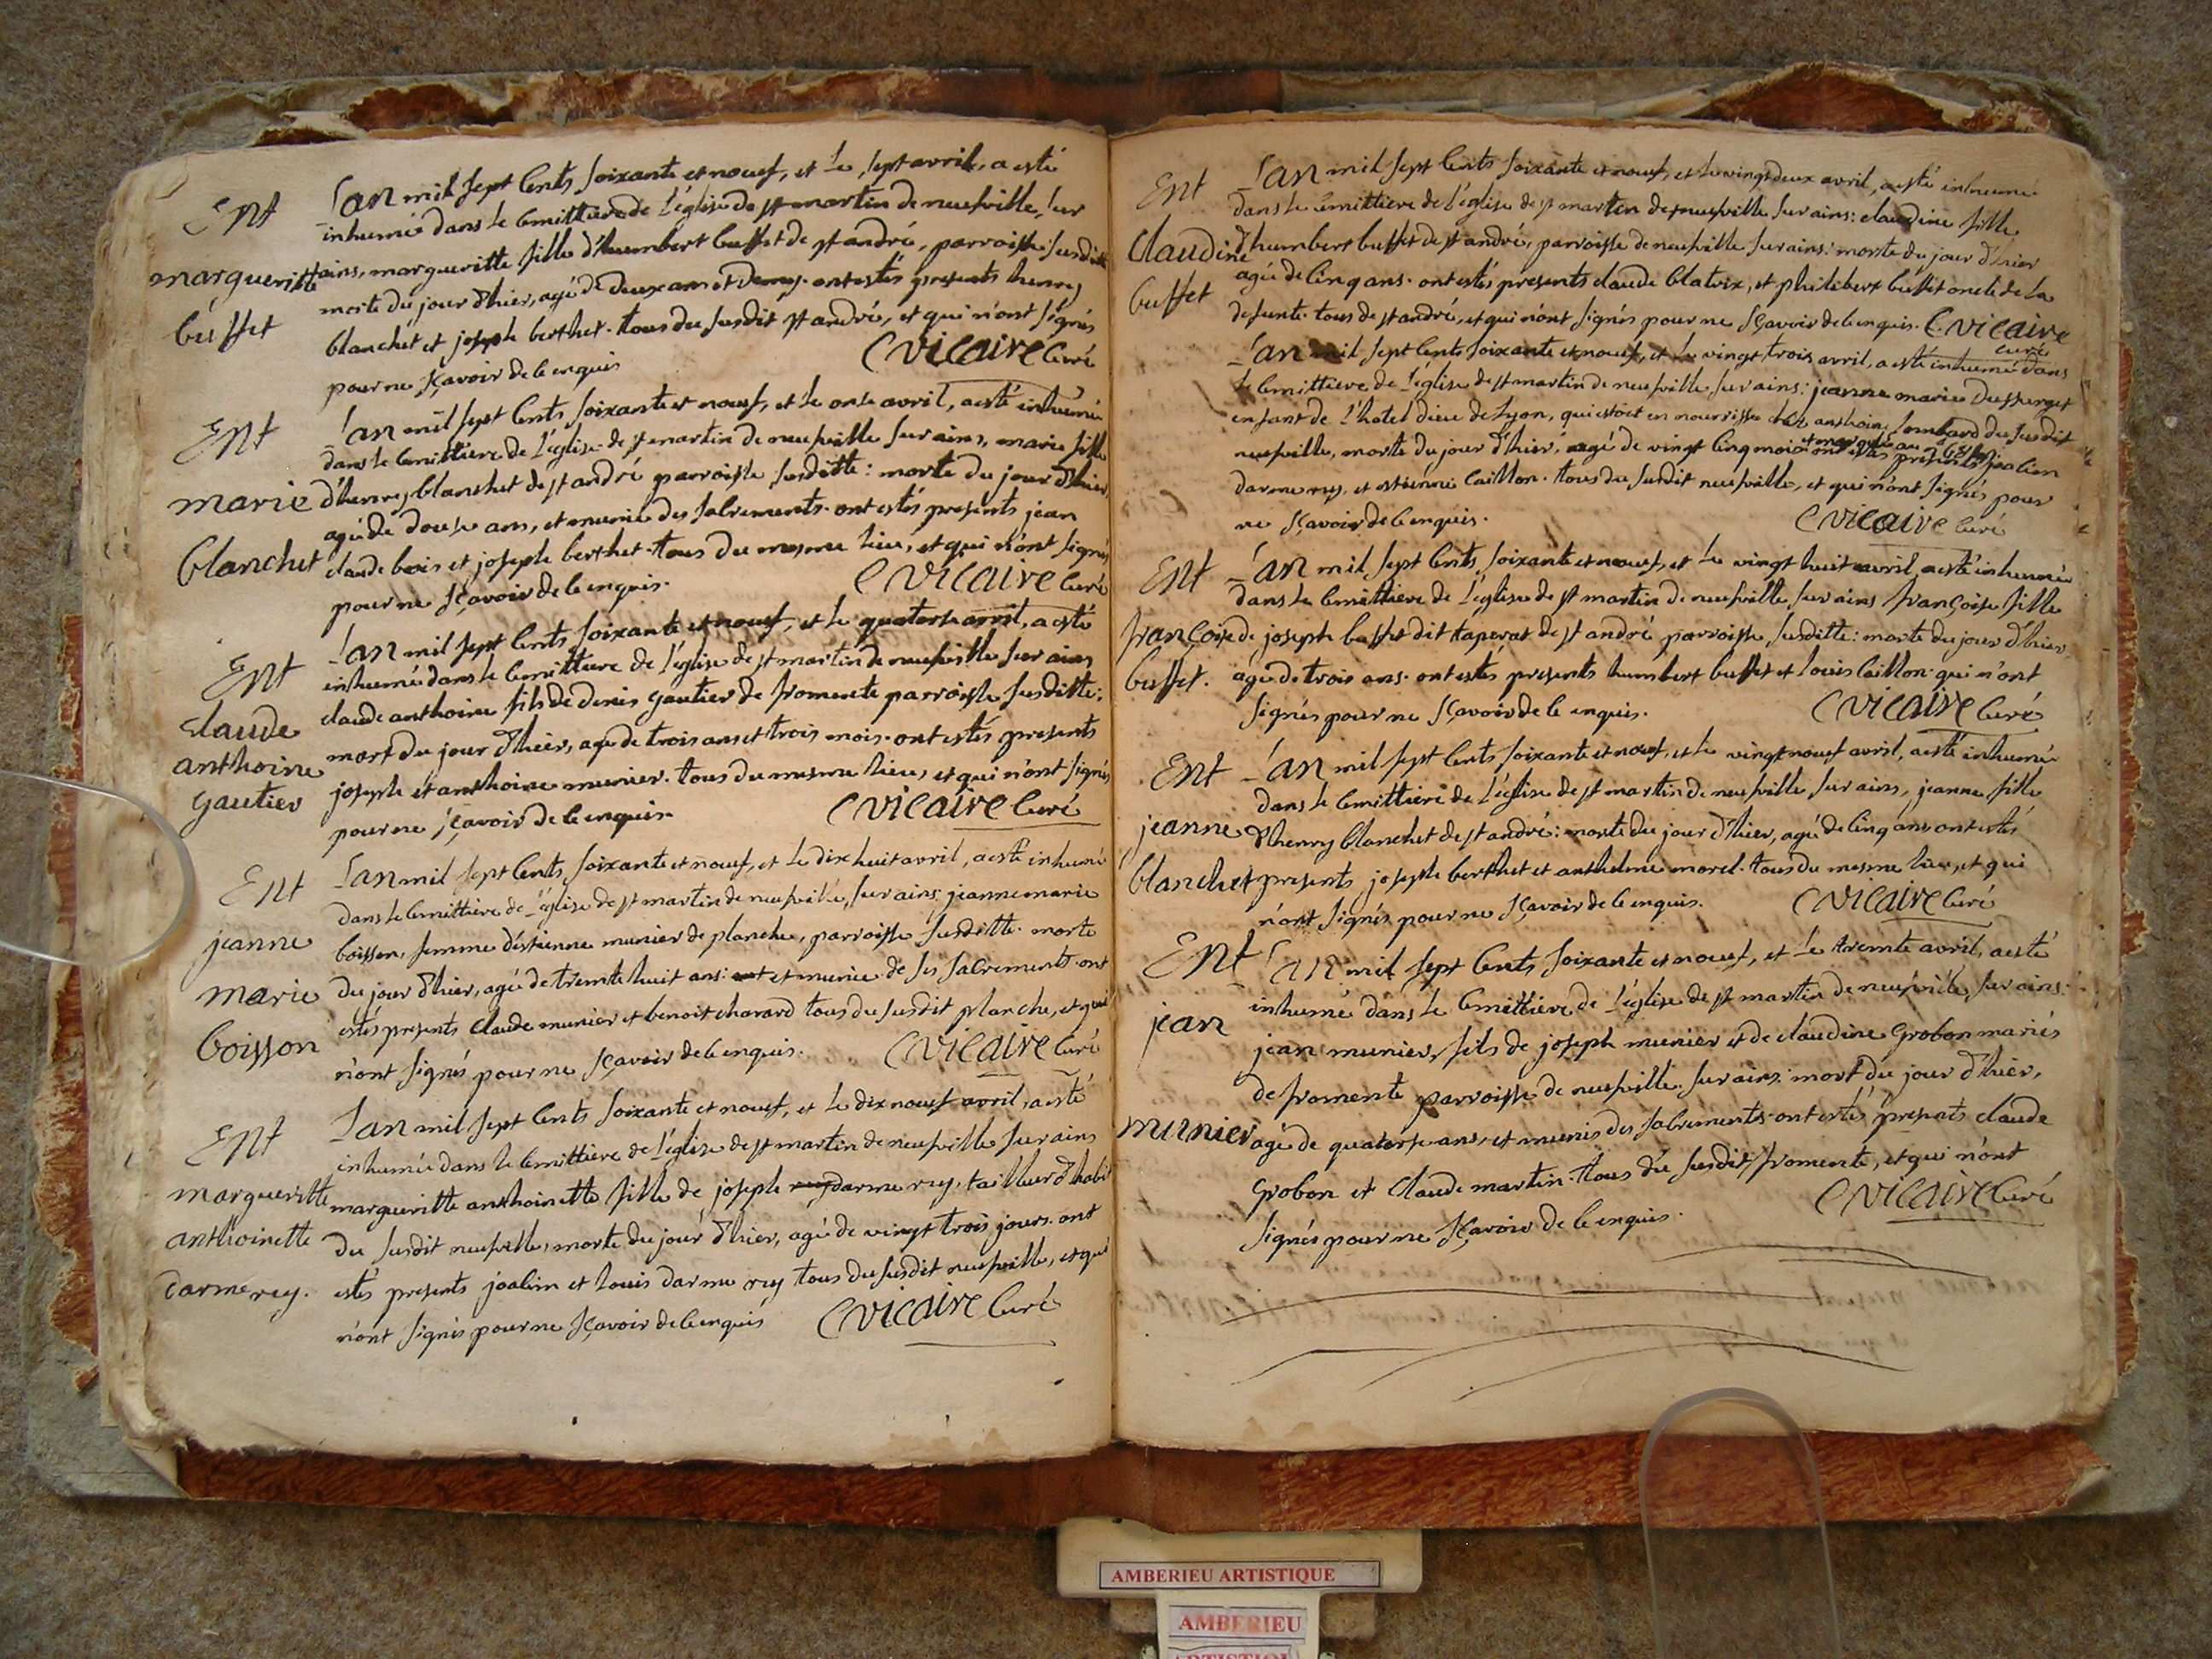 Ent
margueritte
buffet
L'an mil sept cents soixante et noeuf, et le sept avril, a esté
inhumé dans le cemittiere de l'église de st martin de neufville, sur
ains, margueritte fille d'humbert buffet de st andré, parroisse susditte
morte du jour d'hier, agé de deux ans et demy. ont estés presents henry
blanchet et joseph berthet. tous du susdit st andré, et qui n'ont signés
pour ne sçavoir de ce enquis
C vicaire curé
Ent
marie
blanchet
L'an mil sept cents soixante et noeuf, et le onse avril, a esté inhumé
dans le cemittiere de l'église de st martin de neufville sur ains, marie fille
d'henry blanchet de st andré parroisse susditte: morte du jour d'hier,
agé de douse ans, et munie des sacrements. ont estés presents jean
claude bois et joseph berthet. tous du mesme lieu, et qui n'ont signés
pour ne sçavoir de ce enquis.
C vicaire curé
Ent
claude
anthoine
gautier
L'an mil sept cents soixante et noeuf, et le quatorse avril, a esté
inhumé dans le cemittiere de l'église de st martin de neufville sur ains
claude anthoine fils de denis gautier de fromente parroisse susditte:
mort du jour d'hier, agé de trois ans et trois mois. ont estés presents
joseph et anthoine munier. tous du mesme lieu, et qui n'ont signés
pour ne sçavoir de ce enquis.
C vicaire curé
Ent
jeanne
marie
boisson
L'an mil sept cents soixante et noeuf, et le dix huit avril, a esté inhumé
dans le cemittiere de l'église de st martin de neufville, sur ains jeanne marie
boisson, femme d'estienne munier de planche, parroisse susditte. morte
du jour d'hier, agé de trente huit ans: et munie de ses sacrements. ont
estés presents claude munier et benoit charard tous du susdit planche, et qui
n'ont signés pour ne sçavoir de ce enquis.
C vicaire curé
Ent
margueritte
anthoinette
darmerey.
L'an mil sept cents soixante et noeuf, et le dix noeuf avril, a esté
inhumée dans le cemittiere de l'église de st martin de neufville sur ains
margueritte anthoinette fille de joseph darmerey. tailleur d'habit
du susdit neufville, morte du jour d'hier, agé de vingt trois jours. ont
estés presents joachim et louis darmerey tous du susdit neufville, et qui
n'ont signés pour ne sçavoir de ce enquis
C vicaire curé
Ent
claudine
buffet
L'an mil sept cents soixante et noeuf, et le vingt deux avril, a esté inhumé
dans le cemittiere de l'église de st martin de neufville sur ains: claudine fille
d'humbert buffet de st andré, parroisse de neufville sur ains: morte du jour d'hier
agé de cinq ans. ont estés presents claude blatrix, et philibert buffet oncle de la
defunte. tous de st andré, et qui n'ont signés pour ne sçavoir de ce enquis. C. vicaire
curé
L'an mil sept cents soixante et noeuf, et le vingt trois avril, a esté inhumé dans
le cemittiere de l'église de st martin de neufville, sur ains: jeanne marie
enfant de l'hotel dieu de Lyon, qui estoit en nourrisse chez anthoine lombard du susdit
neufville, morte du jour d'hier, agé de vingt cinq mois ont estés presents joachim
darmerey, et estienne caillon. tous du susdit neufville, et qui n'ont signés pour
ne sçavoir de ce enquis.
C vicaire curé
Ent
françoise
buffet.
L'an mil sept cents soixante et noeuf, et le vingt huit avril, a esté inhumée
dans le cemittiere de l'église de st martin de neufville sur ains françoise fille
de joseph buffet dit taperat de st andré parroisse susditte: morte du jour d'hier,
agé de trois ans. ont estés presents humbert buffet et louis caillon. qui n'ont
signés pour ne sçavoir de ce enquis.
C vicaire curé
Ent
jeanne
blanchet
L'an mil sept cents soixante et noeuf, et le vingt noeuf avril, a esté inhumé
dans le cemittiere de l'église de st martin de neufville sur ains, jeanne fille
d'henry blanchet de st andré: morte du jour d'hier, agé de cinq ans. ont estés
presents joseph berthet et anthelme morel. tous du mesme lieu, et qui
n'ont signés pour ne sçavoir de ce enquis.
C vicaire curé
Ent
jean
munier
L'an mil sept cents soixante et noeuf, et le trente avril, a esté
inhumé dans le cemittiere de l'église de st martin de neufville, sur ains:
jean munier, fils de joseph munier et de claudine Grobon mariés
de fromente parroisse de neufville sur ains: mort du jour d'hier,
agé de quatorse ans, et munis des sacrements. ont estés presents claude
Grobon et claude martin. tous du susdit fromente, et qui n'ont
signés pour ne sçavoir de ce enquis.
C vicaire curé
AMBERIEU ARTISTIQUE
AMBERIEU
ARTISTIQUE